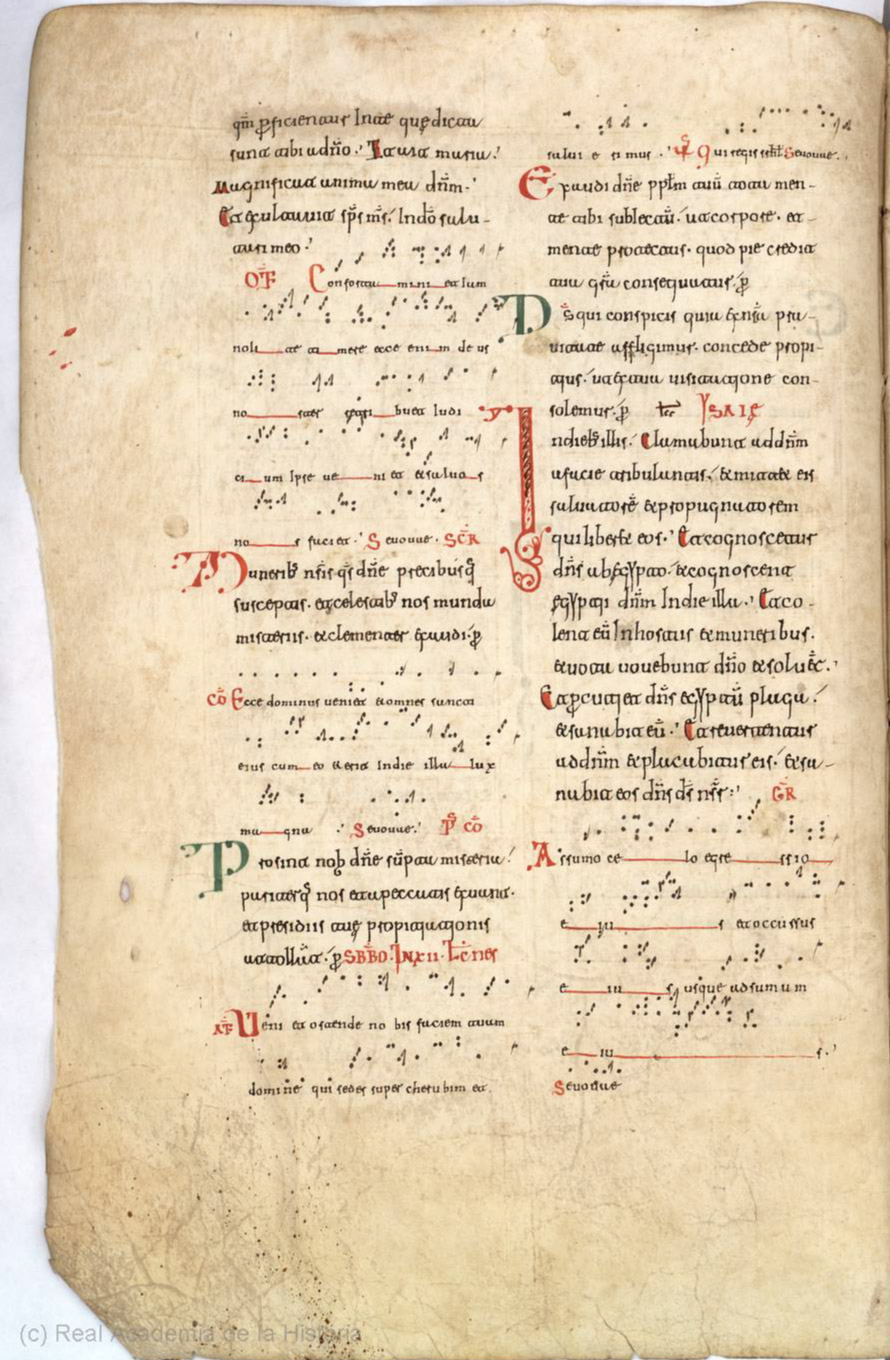 qm̄ ꝑficientur In te quę dicta
sunt tibi a dn̄o· Et ait maria·
Magnificat anima mea dn̄m·
Et exultauit sp̄s ms̄· In dō salu-
tari meo·
OF̄ Confortamini et iam
nolite timere ecce enim deus
noster retribuet Iudi
cium Ipse ueniet et saluos
nos faciet· Seuouae· SC̄R
Muneribꝰ nr̄is qs̄ dn̄e precibusq;
susceptis· et celestibꝰ nos munda
misteriis· et clementer exaudi· ꝑ
CŌ Ecce dominus ueniet et omnes sancti
eius cum eo et erit In die illa lux
magna Seuouae· P̄ CŌ
Prosint nob dn̄e sūpta misteria·
pariterq; nos et a peccatis exuant·
et presidiis tuę propitiationis
attollāt· ꝑ SBB̄O· IN XII· LC̄nes
AF̄ Ueni et ostende nobis faciem tuam
domine qui sedes super cherubim et
salui erimus· V̄ Qui regis isrl̄ Seuouae·
Exaudi dn̄e pplm̄ tuū tota men-
te tibi sublectū· ut corpore· et
mente protectus· quod pie credit
tua grā consequatur· ꝑ
Ds̄ qui conspicis quia ex nrā pra-
uitate affligimur· concede propi-
tius· ut ex tua uisitatione con-
solemur· ꝑ YSAIĘ
In diebꝰ illis· Clamabunt ad dn̄m
a facie tribulantis· et mittet eis
saluatorē et propugnatorem
qui liberet eos· Et cognoscetur
dn̄s ab ęgypto· et cognoscent
ęgyptii dn̄m In die illa· Et co-
lent eū In hostiis et muneribus·
et uota uouebunt dn̄o et soluēt·
Et ꝑcutiet dn̄s egyptū plaga·
et sanabit eū· Et reuertentur
ad dn̄m et placabitur eis· et sa-
nabit eos dn̄s ds̄ nr̄· GR̄
A summo celo egressio
eius et occursus
eius usque ad summum
eius·
Seuouae